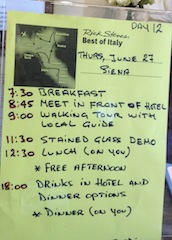 DAY 12
Rick Steves'
Best of Italy
THURS, JUNE 27
SIENA
7:30 BREAKFAST
8:45 MEET IN FRONT OF HOTEL
9:00 WALKING TOUR WITH
LOCAL GUIDE
11:30 STAINED GLASS DEMO
12:30 LUNCH (ON YOU)
* FREE AFTERNOON
18:00 DRINKS IN HOTEL AND
DINNER OPTIONS
* DINNER (ON YOU)